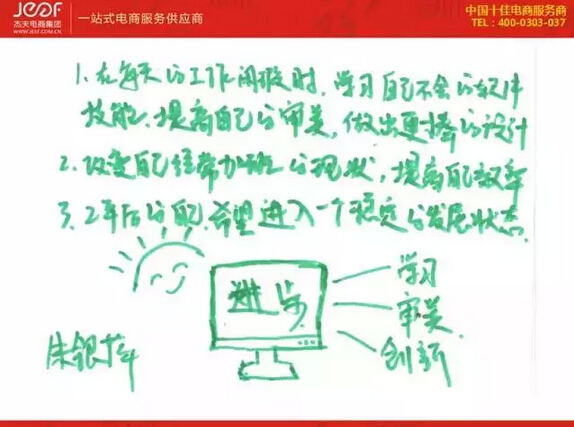 JEOF
杰夫电商集团
WWW.JEOF.COM.CN
一站式电商服务供应商
中国十佳电商服务商
TEL：400-0303-037
1.在每天的工作闲暇时，学习自己不会的软件
技能、提高自己的审美，做出更棒的设计
2.改变自己经常加班的现状，提高自己效率
3.2年后的自己，希望进入一个稳定的发展状态.
进步
学习
审美
创新
朱银萍